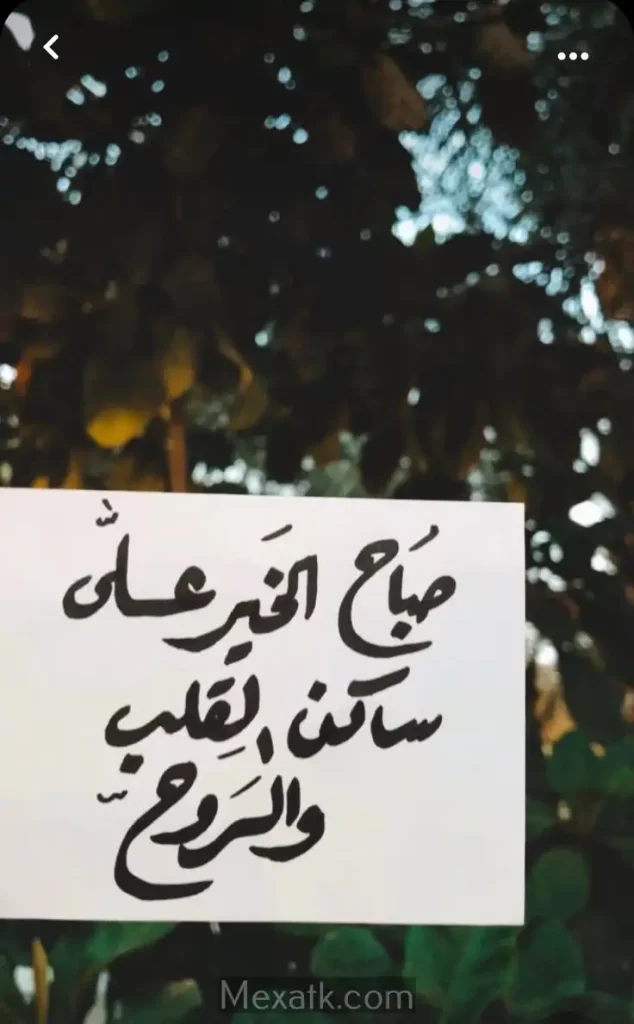 صَباح الخَير علىّ
ساكن القِلب
والرَوح
Mexatk.com